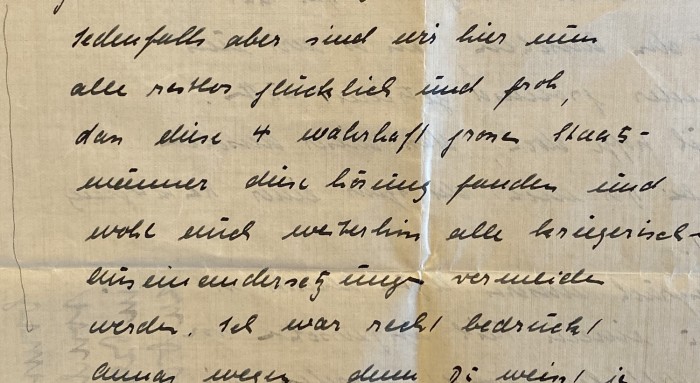 Jedenfalls aber sind wir hier nun
alle restlos glücklich und froh,
dass diese 4 wahrhaft grossen Staats-
männer diese Lösung fanden und
wohl auch weiterhin alle kriegerisch-
Auseinandersetzungen vermeiden
werden. Ich war recht bedrückt
Annas wegen, denn Du weisst ja